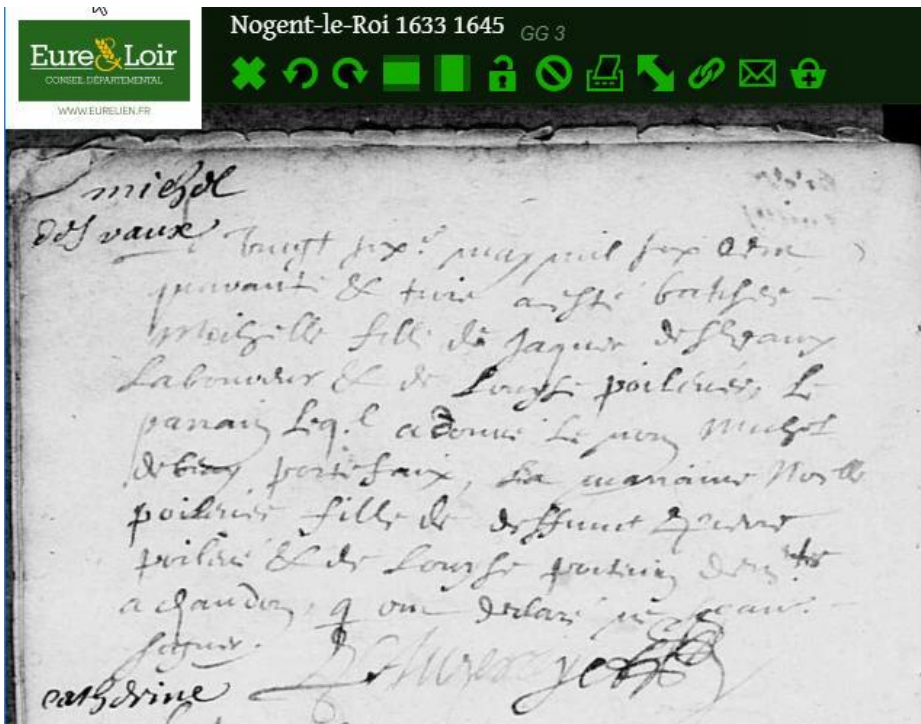 Eure & Loir
CONSEIL DÉPARTEMENTAL
WWW.EURELIEN.FR
Nogent-le-Roi 1633 1645 GG 3
michel
desvaux
vingt six.e may mil six cens
quarante & trois a esté baptisée
Michelle fille de Jaques desveaux
Laboureur & de Louyse poileuée, Le
parrain Leq.l a donné Le nom Michel
portefaix, La marraine Noelle
poileuée fille de deffunct pierre
poileué & de Louyse dem.te
a chandon, q ont declaré ne sçauoir
signer.
catherine